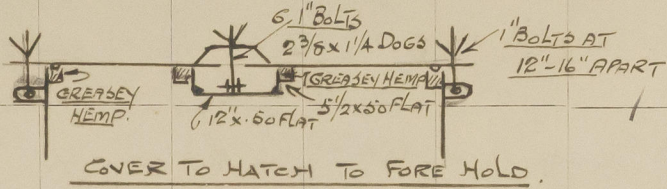 6, 1" BOLTS
2 3/8 x 1 1/4 DOGS
1" BOLTS AT
12"-16" APART
GREASEY
HEMP.
GREASEY HEMP
5 1/2 x 50 FLAT
12" x .50 FLAT
COVER TO HATCH TO FORE HOLD.